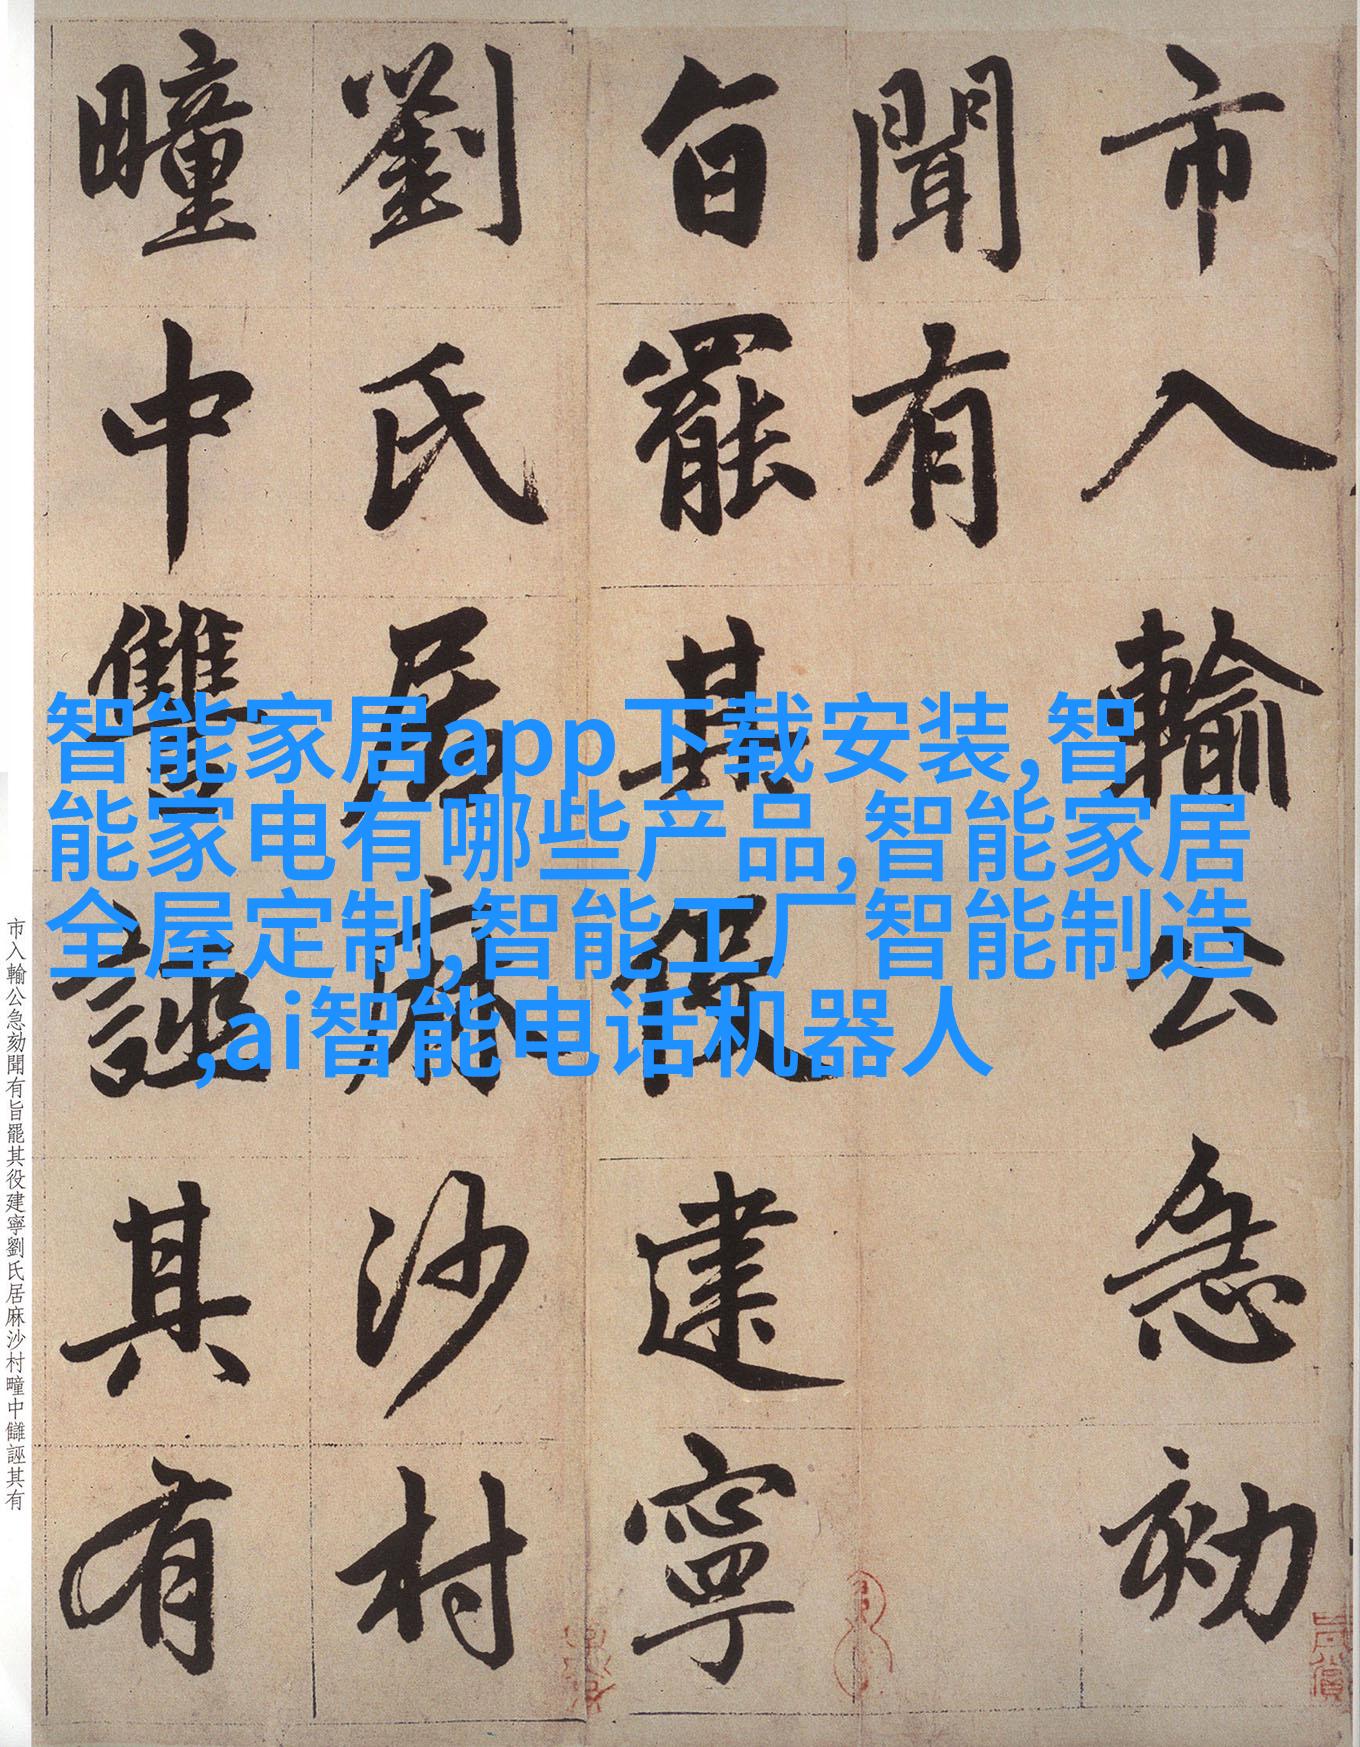 市入輸公急劾
聞有
旨罷其役建寧
劉氏居麻沙村
疃中讐誣其有
智能家居app下载安装,智
能家电有哪些产品,智能家居
全屋定制,智能工厂智能制造
,ai智能电话机器人
市入輸公急劾聞有旨罷其役建寧劉氏居麻沙村疃中讎誣其有